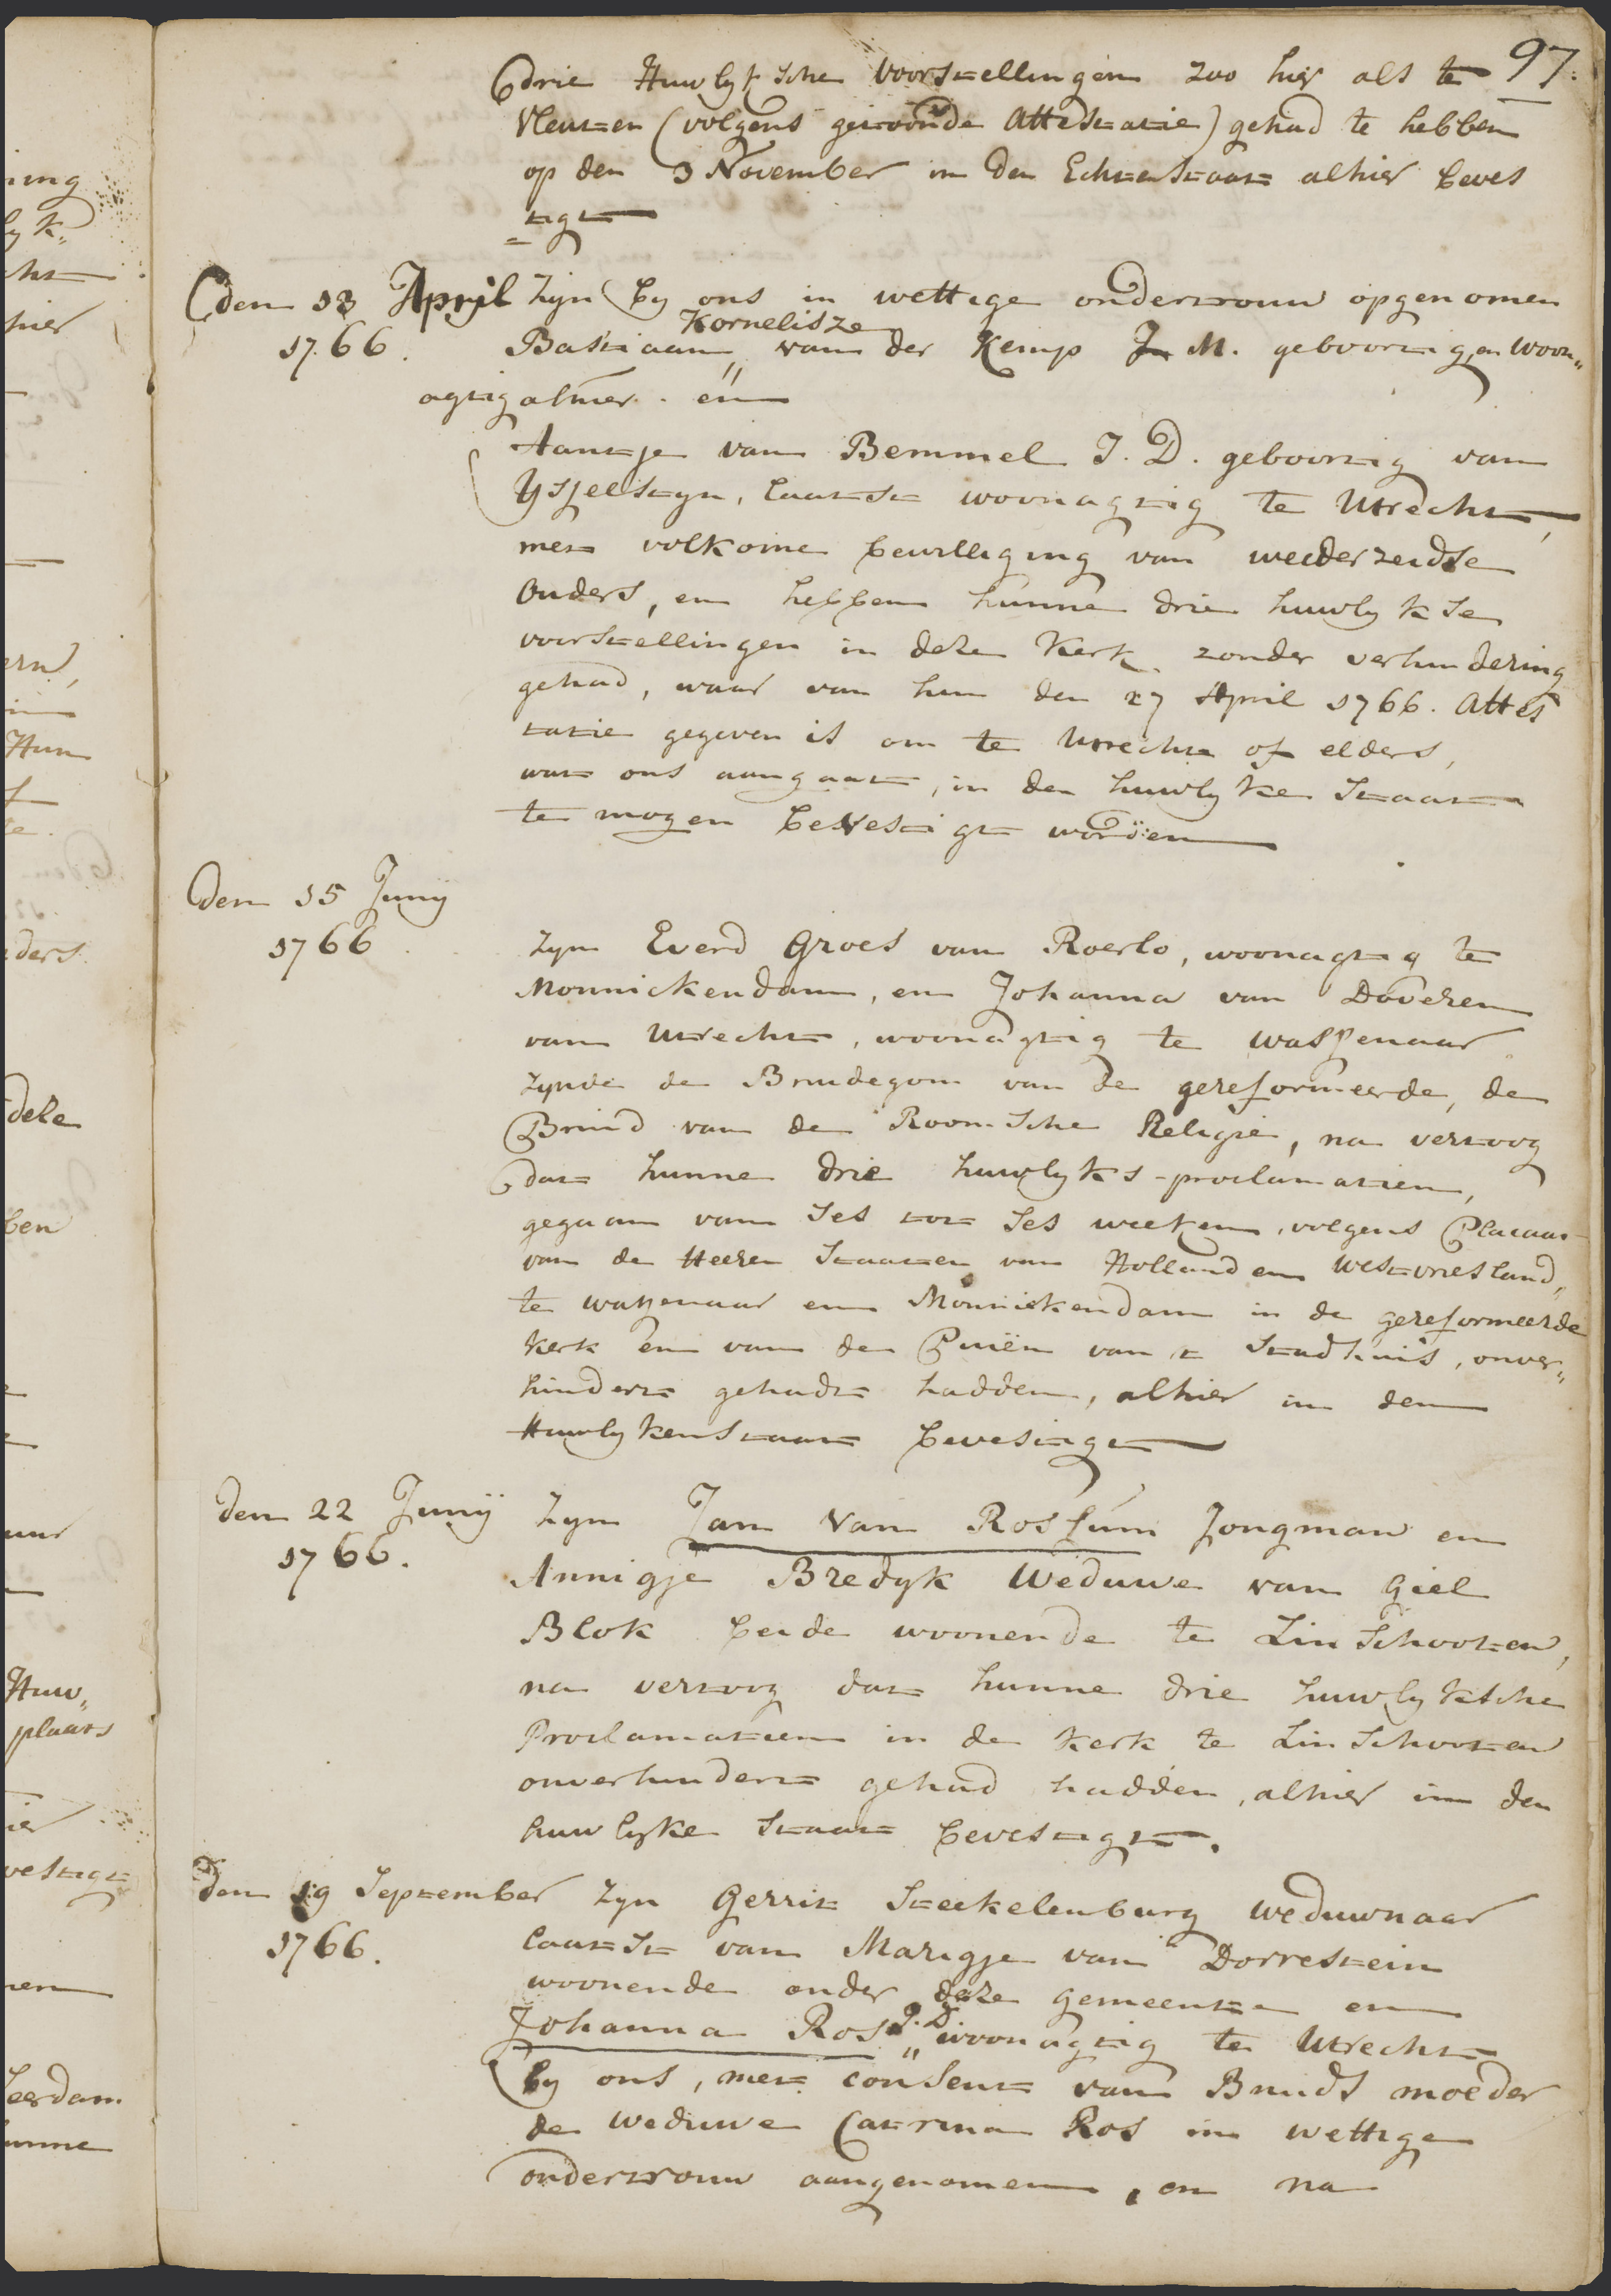 97.
drie Huwlyksche voorstellingen zoo hier als te
Vleuten (volgens getoonde Attestatie) gehad te hebben
op den 3 November in den Echtenstaat alhier beves
=tigt
den 13 April zijn by ons in wettige ondertrouw opgenomen
1766. Bastiaan Kornelisze van der Kemp J. M. geboortig en woon„
agtig alhier. en
Aantje van Bemmel J. D. geboortig van
Ysselsteyn, laatst woonagtig te Utrecht,
met volkome bewilliging van weederzeidse
Ouders, en hebben hunne drie huwlykse
voorstellingen in deze Kerk zonder verhindering
gehad, waar van hun den 27 April 1766. Attes
tatie gegeven is om te Utrecht of elders,
wat ons aangaat, in den huwlyke Staat
te mogen bevestigt worden
Den 15 Junij
1766 zyn Everd Groes van Roerlo, woonagtig te
Monnickendam, en Johanna van Doveren
van Utrecht, woonagtig te Wassenaar
zynde de Bruidegom van de gereformeerde, de
Bruid van de Roomsche Religie, na vertoog
dat hunne drie huwlyks-proclamatien,
gegaan van ses tot ses weeken, volgens Placaat
van de Heeren Staaten van Holland en Westvriesland,
te Wassenaar en Monnickendam in de gereformeerde
kerk en van de Puiën van t Stadhuis, onver„
hindert gehadt hadden, alhier in den
Huwlykenstaat bevestigt
den 22 Junij zyn Jan van Rossum Jongman en
1766. Annigje Bredyk Weduwe van Giel
Blok beide woonende te Linschooten,
na vertoog dat hunne drie huwlyksche
Proclamatien in de kerk te Linschooten
onverhindert gehad hadden, alhier in den
huwlyke Staat bevestigt.
Den 19 September zyn Gerrit Steekelenburg weduwnaar
1766. laatst van Marigje van Dorrestein
woonende onder deze gemeente en
Johanna Ros J. D. woonagtig te Utrecht
by ons, met consent van Bruids moeder
de weduwe Catrina Ros in wettige
ondertrouw aangenomen, en na